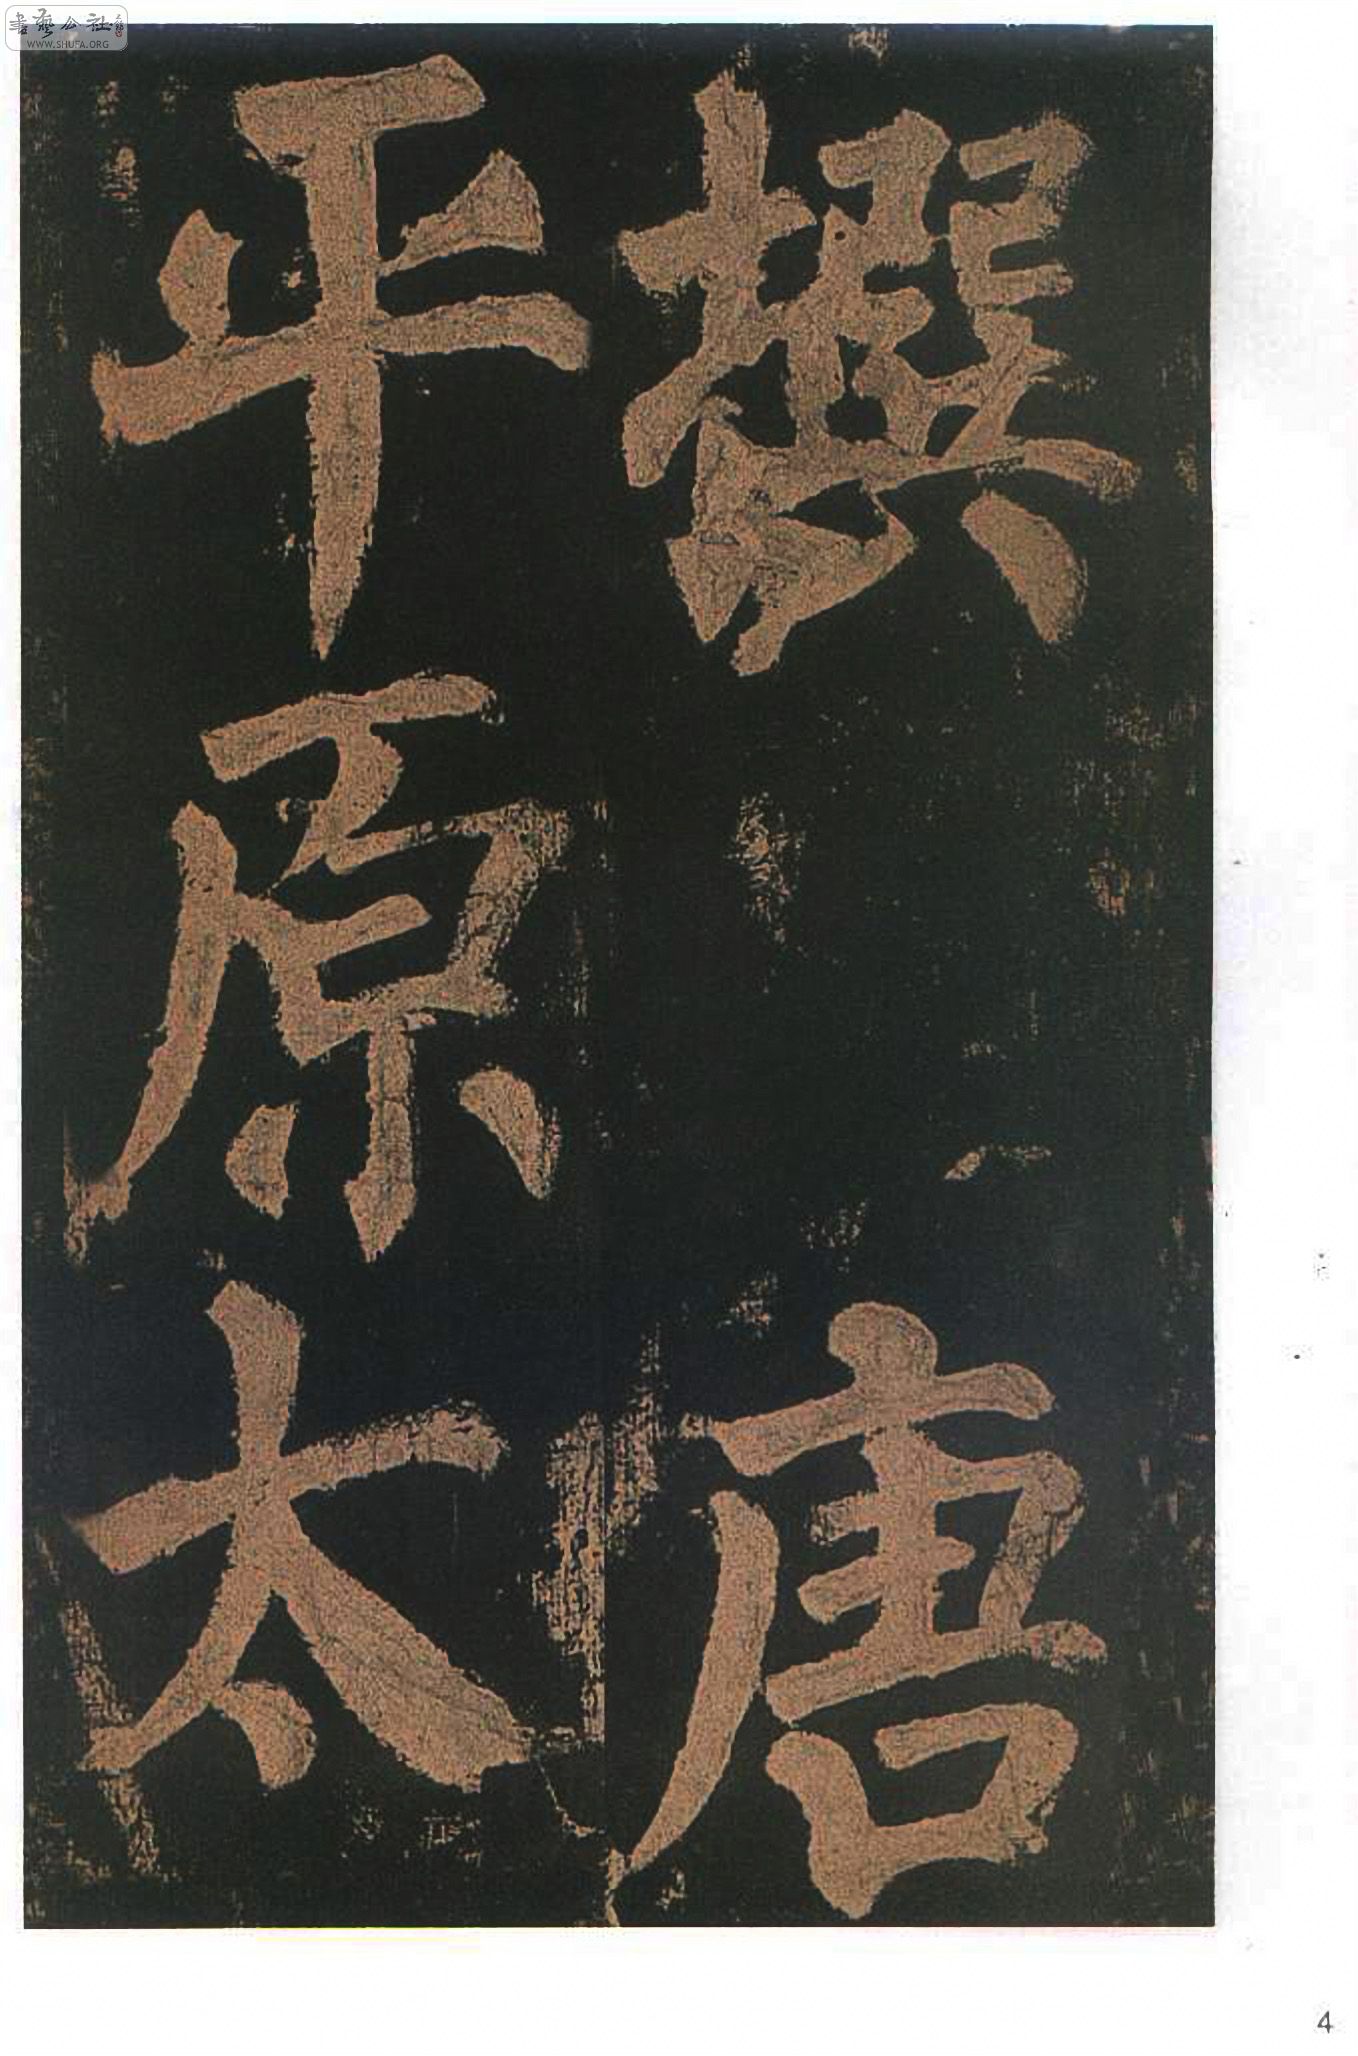 書藝公社
WWW.SHUFA.ORG
撰 唐
平原太
4